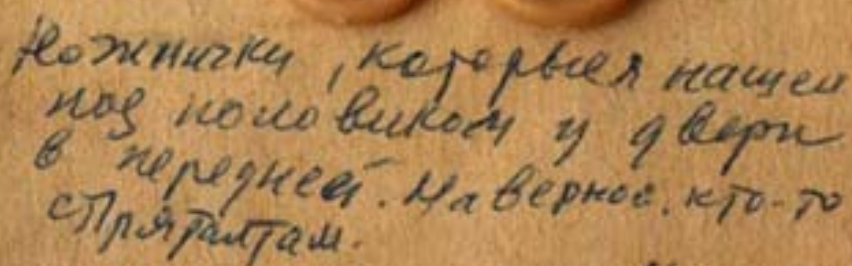 Ножнички, которые я нашел
под половиком у двери
в передней. Наверное, кто-то
спрятал там.